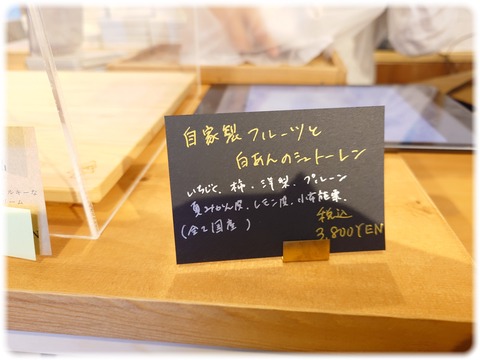 自家製フルーツと
白あんのシュトーレン
いちじく、柿、洋梨、プルーン
夏みかん皮、レモン皮、小布施栗、
(全て国産)
税込
3,800YEN